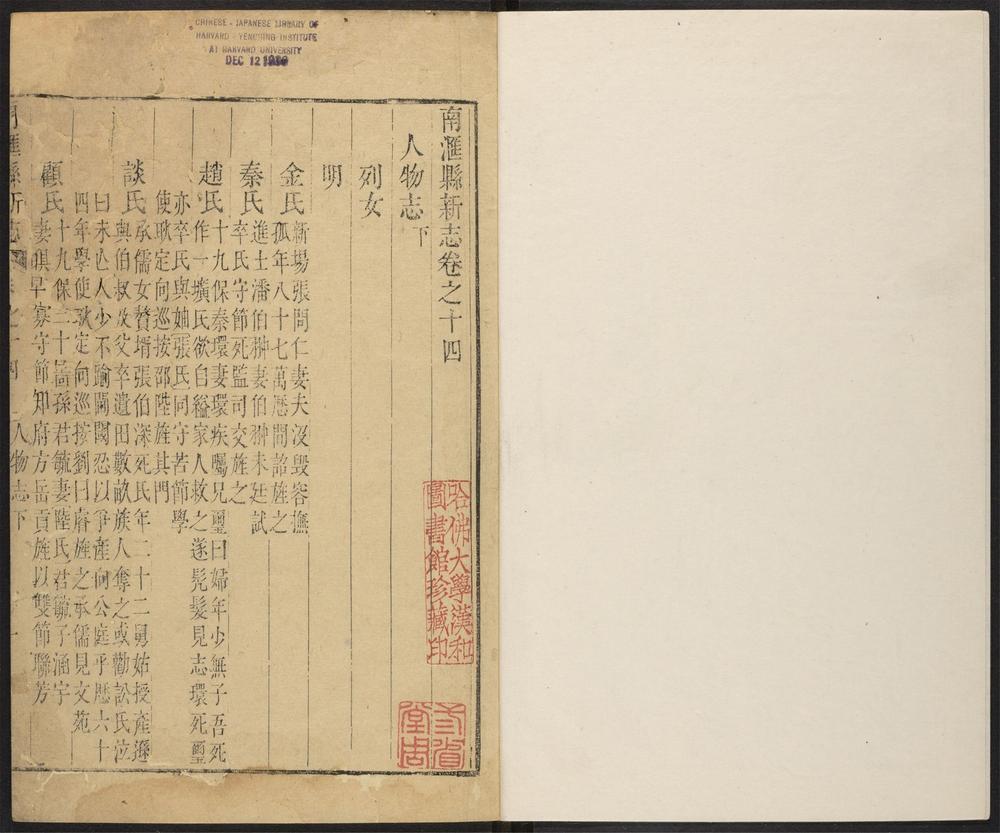 CHINESE - JAPANESE LIBRARY OF
HARVARD - YENCHING INSTITUTE
AT HARVARD UNIVERSITY
DEC 12
南滙縣新志卷之十四
人物志下
列女
明
金氏
新塲張問仁妻夫沒毀容撫
孤年八十七萬歷間詔旌之
秦氏
進士潘伯翀妻伯翀未廷試
卒氏守節死監司交旌之
趙氏
十九保秦環妻環疾囑兄璽曰婦年少無子吾死
作一壙氏欲自縊家人救之遂髠髮見志環死璽
亦卒氏與妯張氏同守苦節學
使耿定向巡按邵陛旌其門
談氏
承儒女贅壻張伯深死氏年二十二舅姑授產遜
與伯叔及父卒遺田數畝族人奪之或勸訟氏泣
曰未亡人少不踰閫閾忍以爭產向公庭乎歴六十
四年學使耿定向巡按劉曰睿旌之承儒見文苑
顧氏
十九保二十啚孫君毓妻陸氏君毓子涵宇
妻俱早寡守節知府方岳貢旌以雙節聯芳
人物志下
哈佛大學漢和
圖書館珍藏印